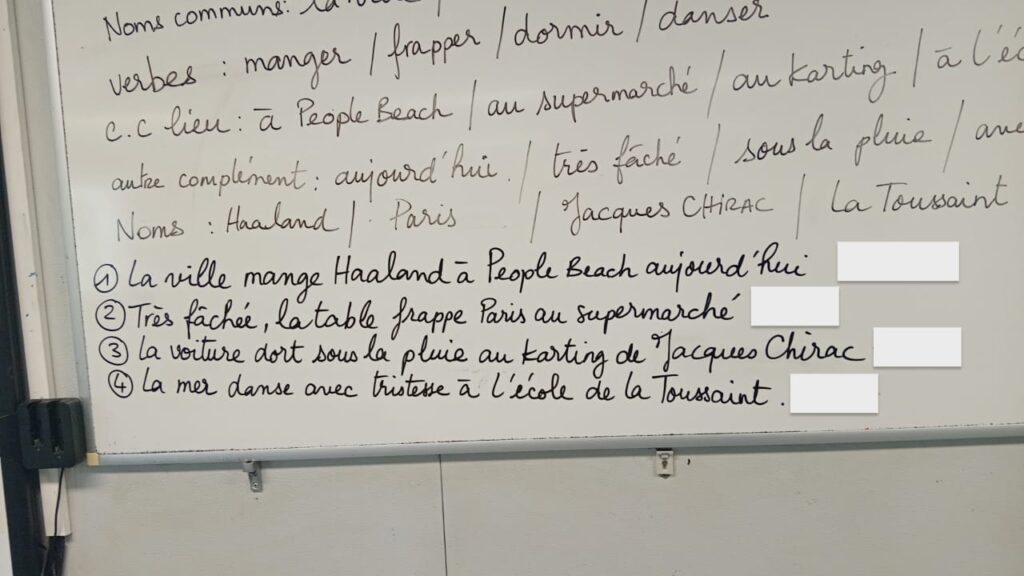 Noms communs: la ville /
verbes : manger / frapper / dormir / danser
c.c lieu : à People Beach / au supermarché / au karting / à l'éc
autre complément : aujourd'hui. / très fâché / sous la pluie / ave
Noms : Haaland / Paris / Jacques CHIRAC / La Toussaint
① La ville mange Haaland à People Beach aujourd'hui
② Très fâchée, la table frappe Paris au supermarché
③ La voiture dort sous la pluie au karting de Jacques Chirac
④ La mer danse avec tristesse à l'école de la Toussaint.